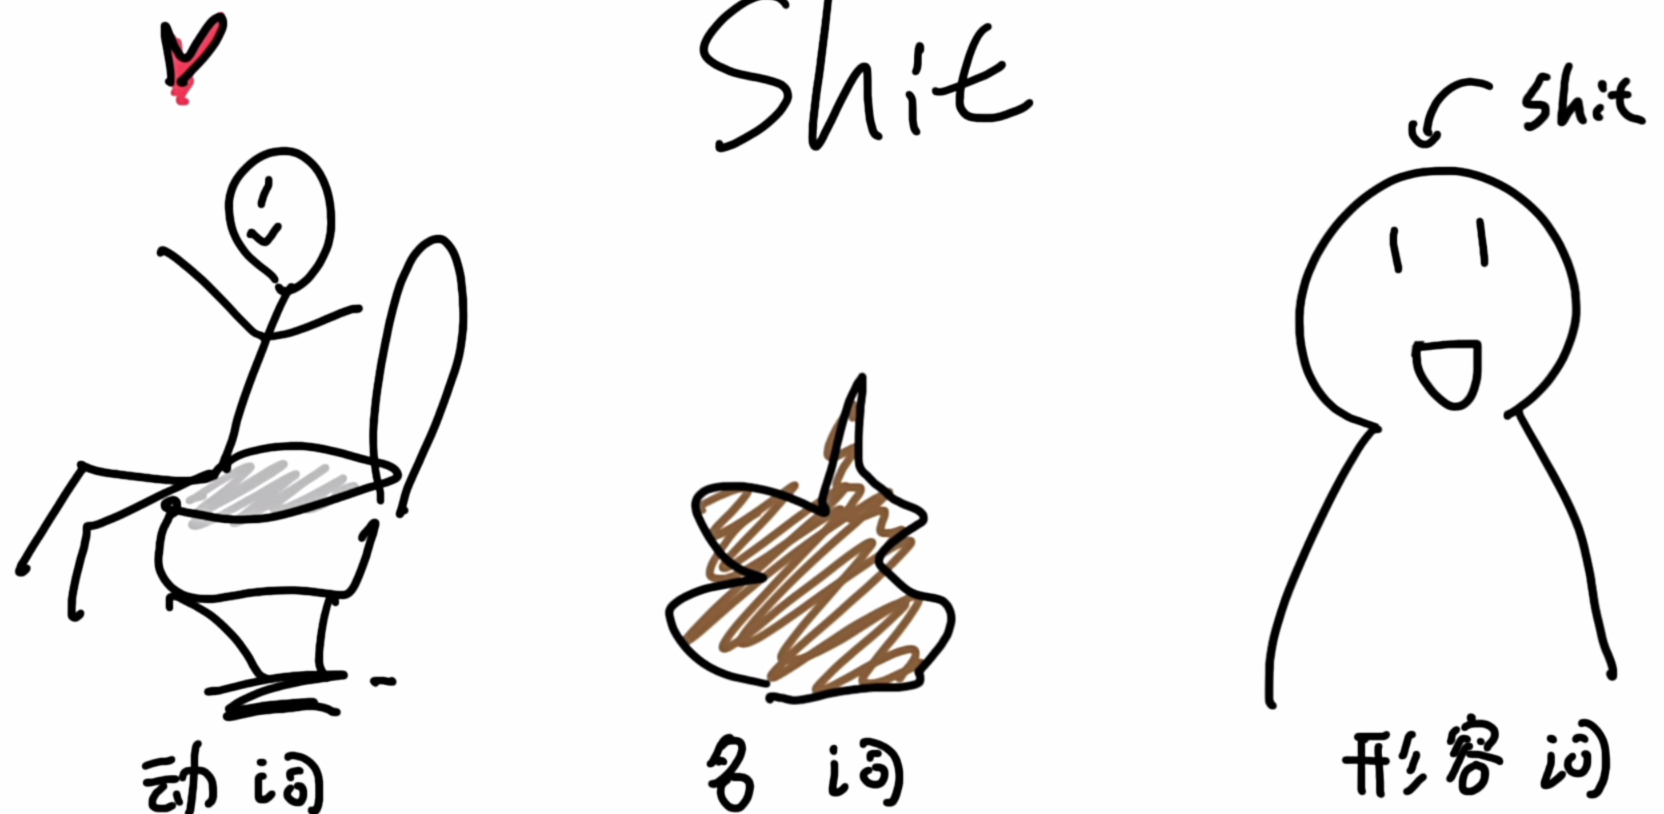 Shit
shit
动词
名词
形容词